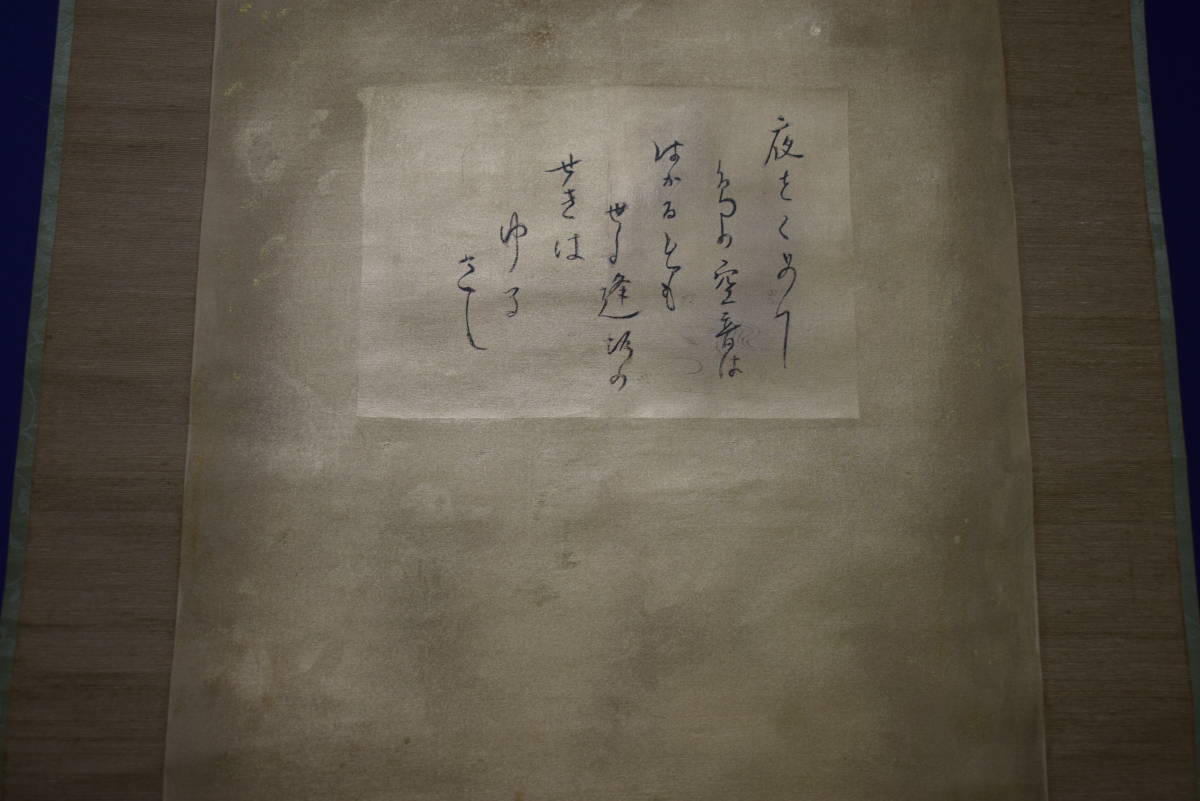 夜をこめて
鳥の空音は
はかるとも
世に逢坂の
せきは
ゆる
さし